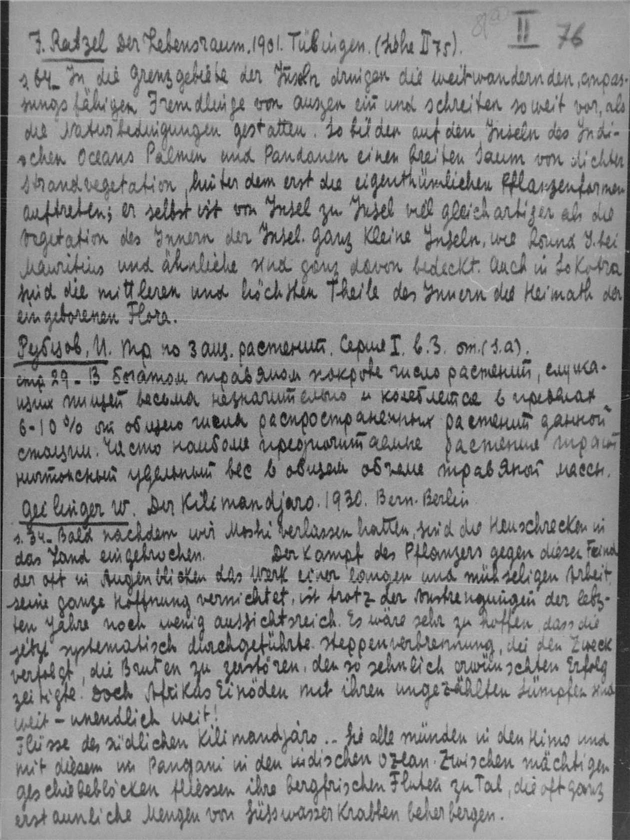 II 76
F. Ratzel Der Lebensraum. 1901. Tübingen. (Höhe II 75).
s. 64 - In die Grenzgebiete der Inseln dringen die weitwandernden, anpas-
sungsfähigen Fremdlinge von auszen ein und schreiten so weit vor, als
die Naturbedingungen gestatten. So bilden auf den Inseln des Indi-
schen Oceans Palmen und Pandanen einen breiten Saum von dichter
Strandvegetation, hinter dem erst die eigenthümlichen Pflanzenformen
auftreten; er selbst ist von Insel zu Insel viell gleichartiger als die
Vegetation des Innern der Insel. Ganz kleine Inseln, wie Round I. bei
Mauritius und ähnliche sind ganz davon bedeckt. Auch in Sokotra
sind die mittleren und höchsten Theile des Innern die Heimath der
eingeborenen Flora.
Рубцов, И. Тр по защ. растений. Серия I. в. 3. от. (s. a).
стр 29 - В богатом травяном покрове число растений, служа-
щих пищей весьма незначительно и колеблется в пределах
6-10% от общего числа распространенных растений данной
стации. Часто наиболее предпочитаемые растения
ничтожный удельный вес в общем объеме травяной массы.
Geilinger W. Der Kilimandjaro. 1930. Bern-Berlin
s. 34 - Bald nachdem wir Moshi verlassen hatten, sind die Heuschrecken in
das Land eingebrochen. Der Kampf des Pflanzers gegen diesen Feind
der oft in Augenblicken das Werk einer langen und mühseligen Arbeit,
seine ganze Hoffnung vernichtet, ist trotz der Anstrengungen der letz-
ten Jahre noch wenig aussichtsreich. Es wäre sehr zu hoffen, dass die
jetzt systematisch durchgeführte Steppenverbrennung, die den Zweck
verfolgt, die Bruten zu zerstören, den so sehnlich erwünschten Erfolg
zeitigte. Doch Afrikas Einöden mit ihren ungezählten Sümpfen sind
weit - unendlich weit!
Flüsse des südlichen Kilimandjaro .. Sie alle münden in den Himo und
mit diesem im Pangani in den indischen Ozean. Zwischen mächtigen
geschiebeblicken fliessen ihre bergfrischen Fluten zu Tal, die oft ganz
erstaunliche Mengen von Süsswasser Krabben beherbergen.